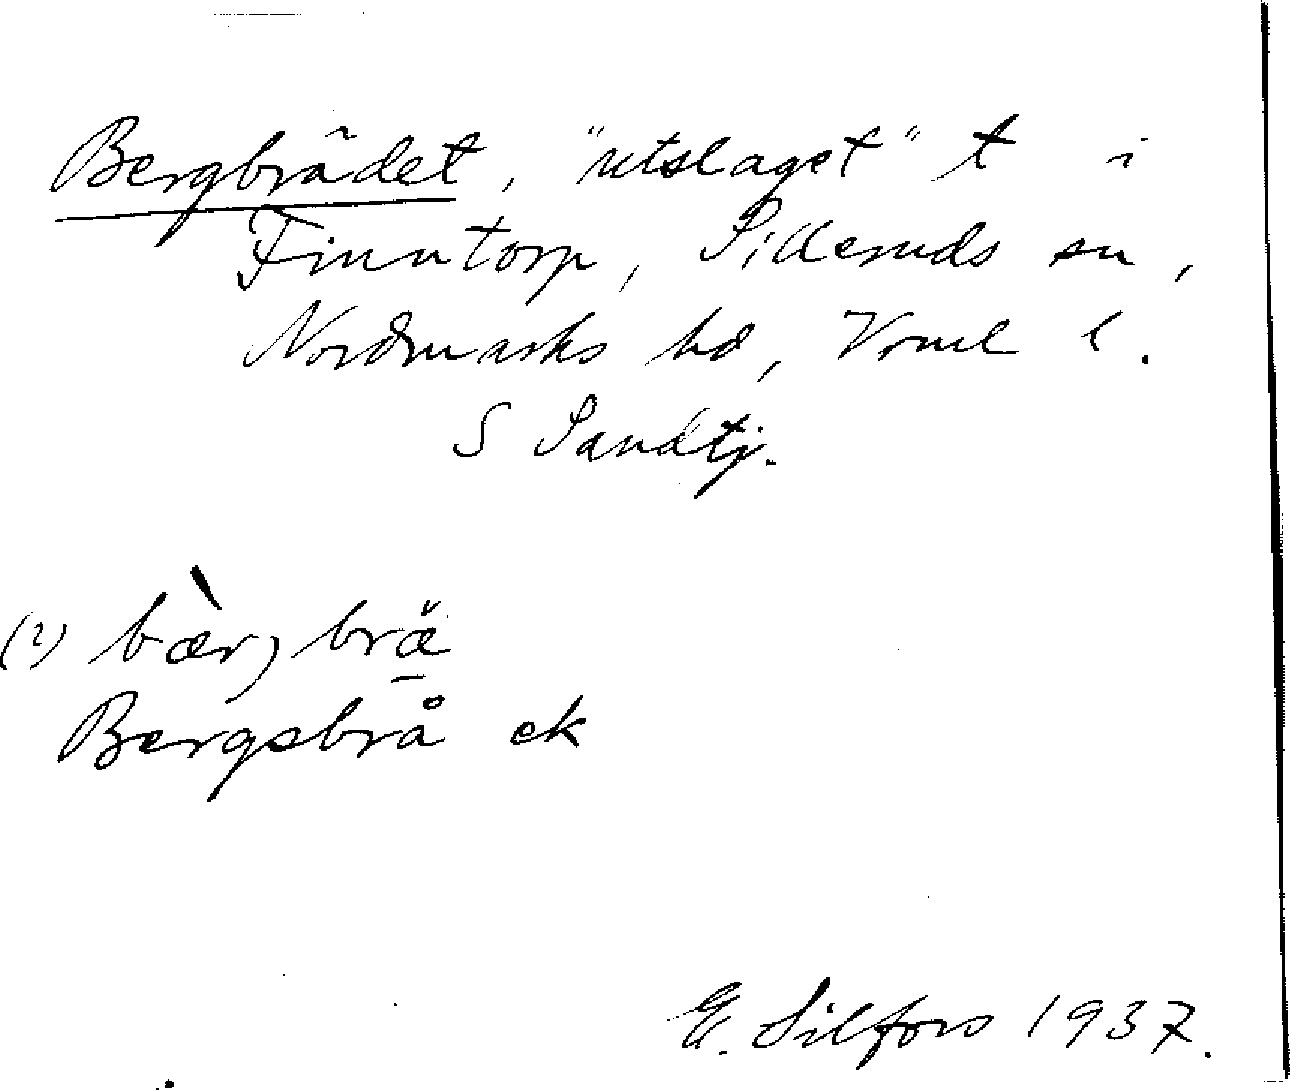 Bergbrådet, "utslaget" t i
Finntorp, Silleruds sn,
Nordmarks hd, Vrml l.
S Sandtj.
(2) bær, bræ
Bergsbrå ek
E. Silfors 1937.